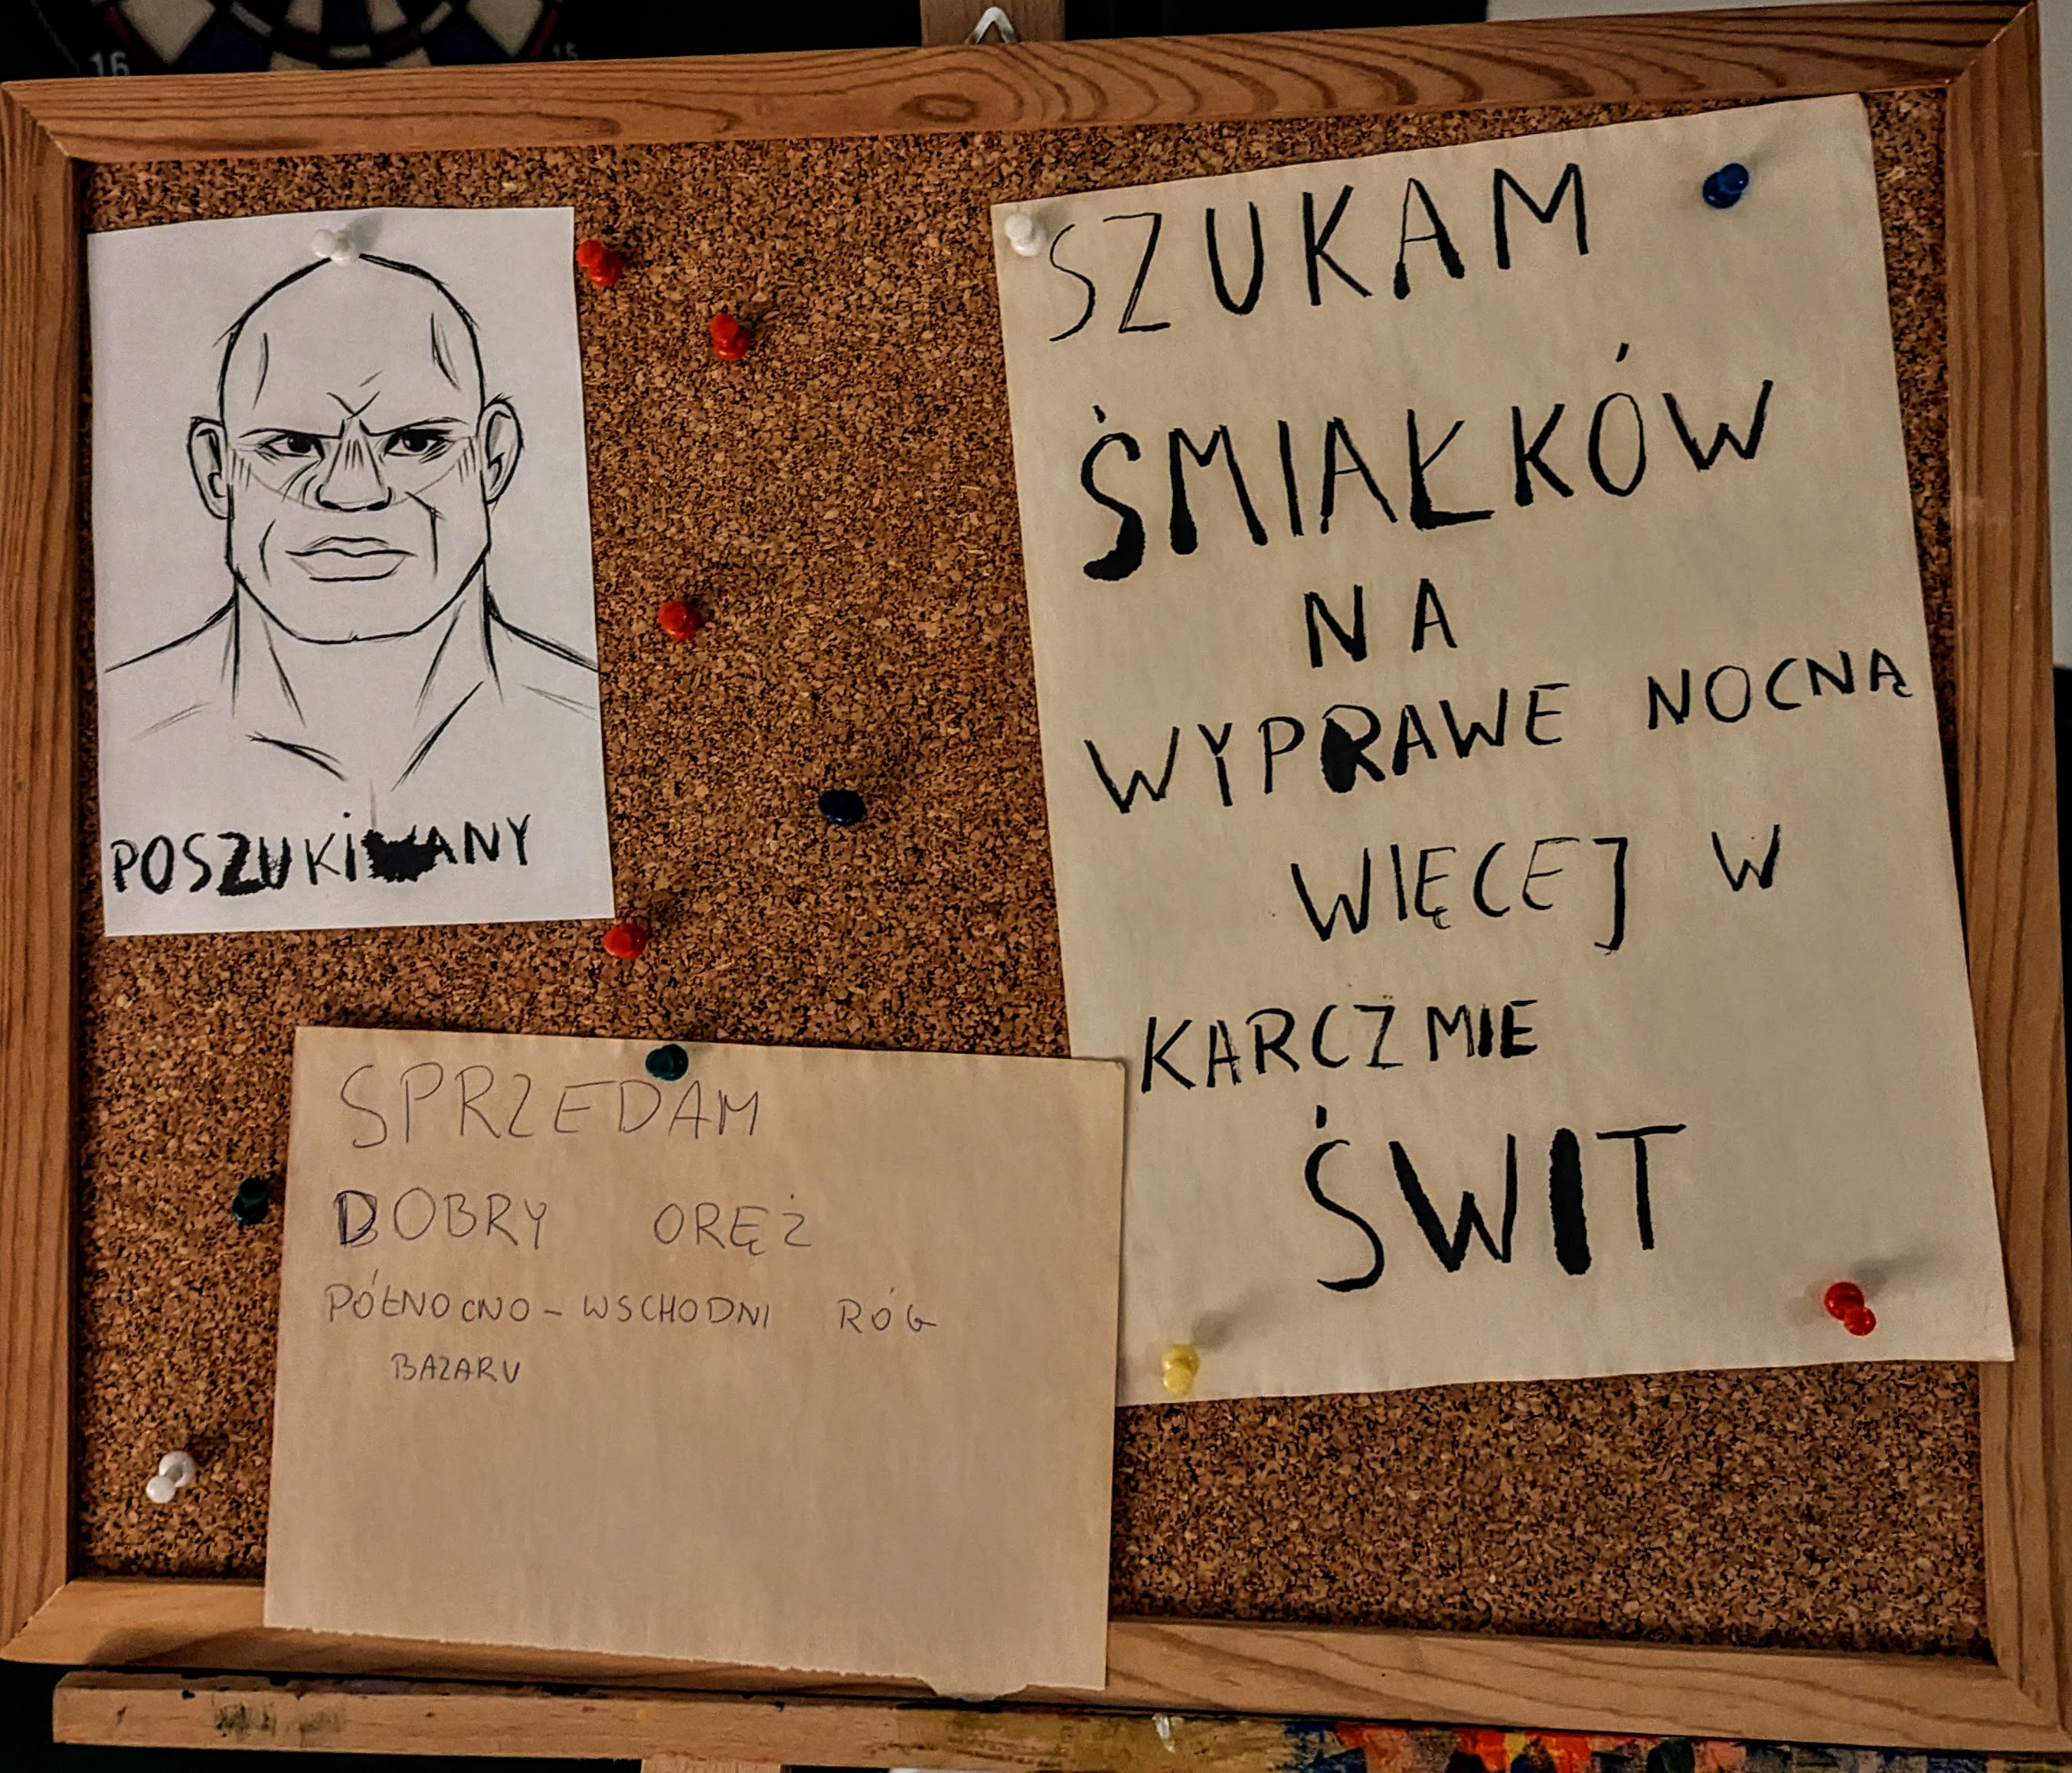 16
15
POSZUKiWANY
SZUKAM
ŚMIAŁKÓW
NA
WYPRAWE NOCNĄ
WIĘCEJ W
KARCZMIE
ŚWIT
SPRZEDAM
DOBRY ORĘŻ
PÓŁNOCNO-WSCHODNI RÓG
BAZARU